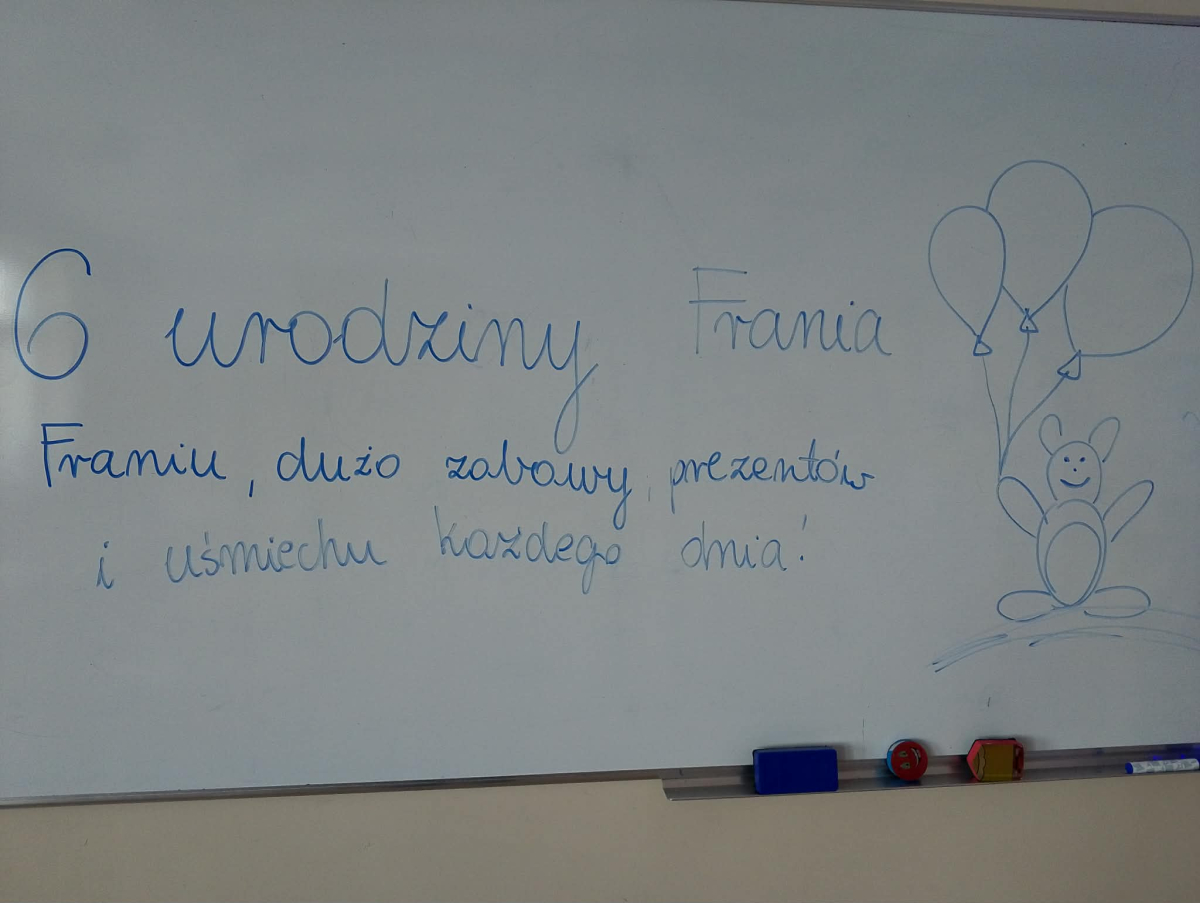 6 urodziny Frania
Franiu, dużo zabawy, prezentów
i uśmiechu każdego dnia!